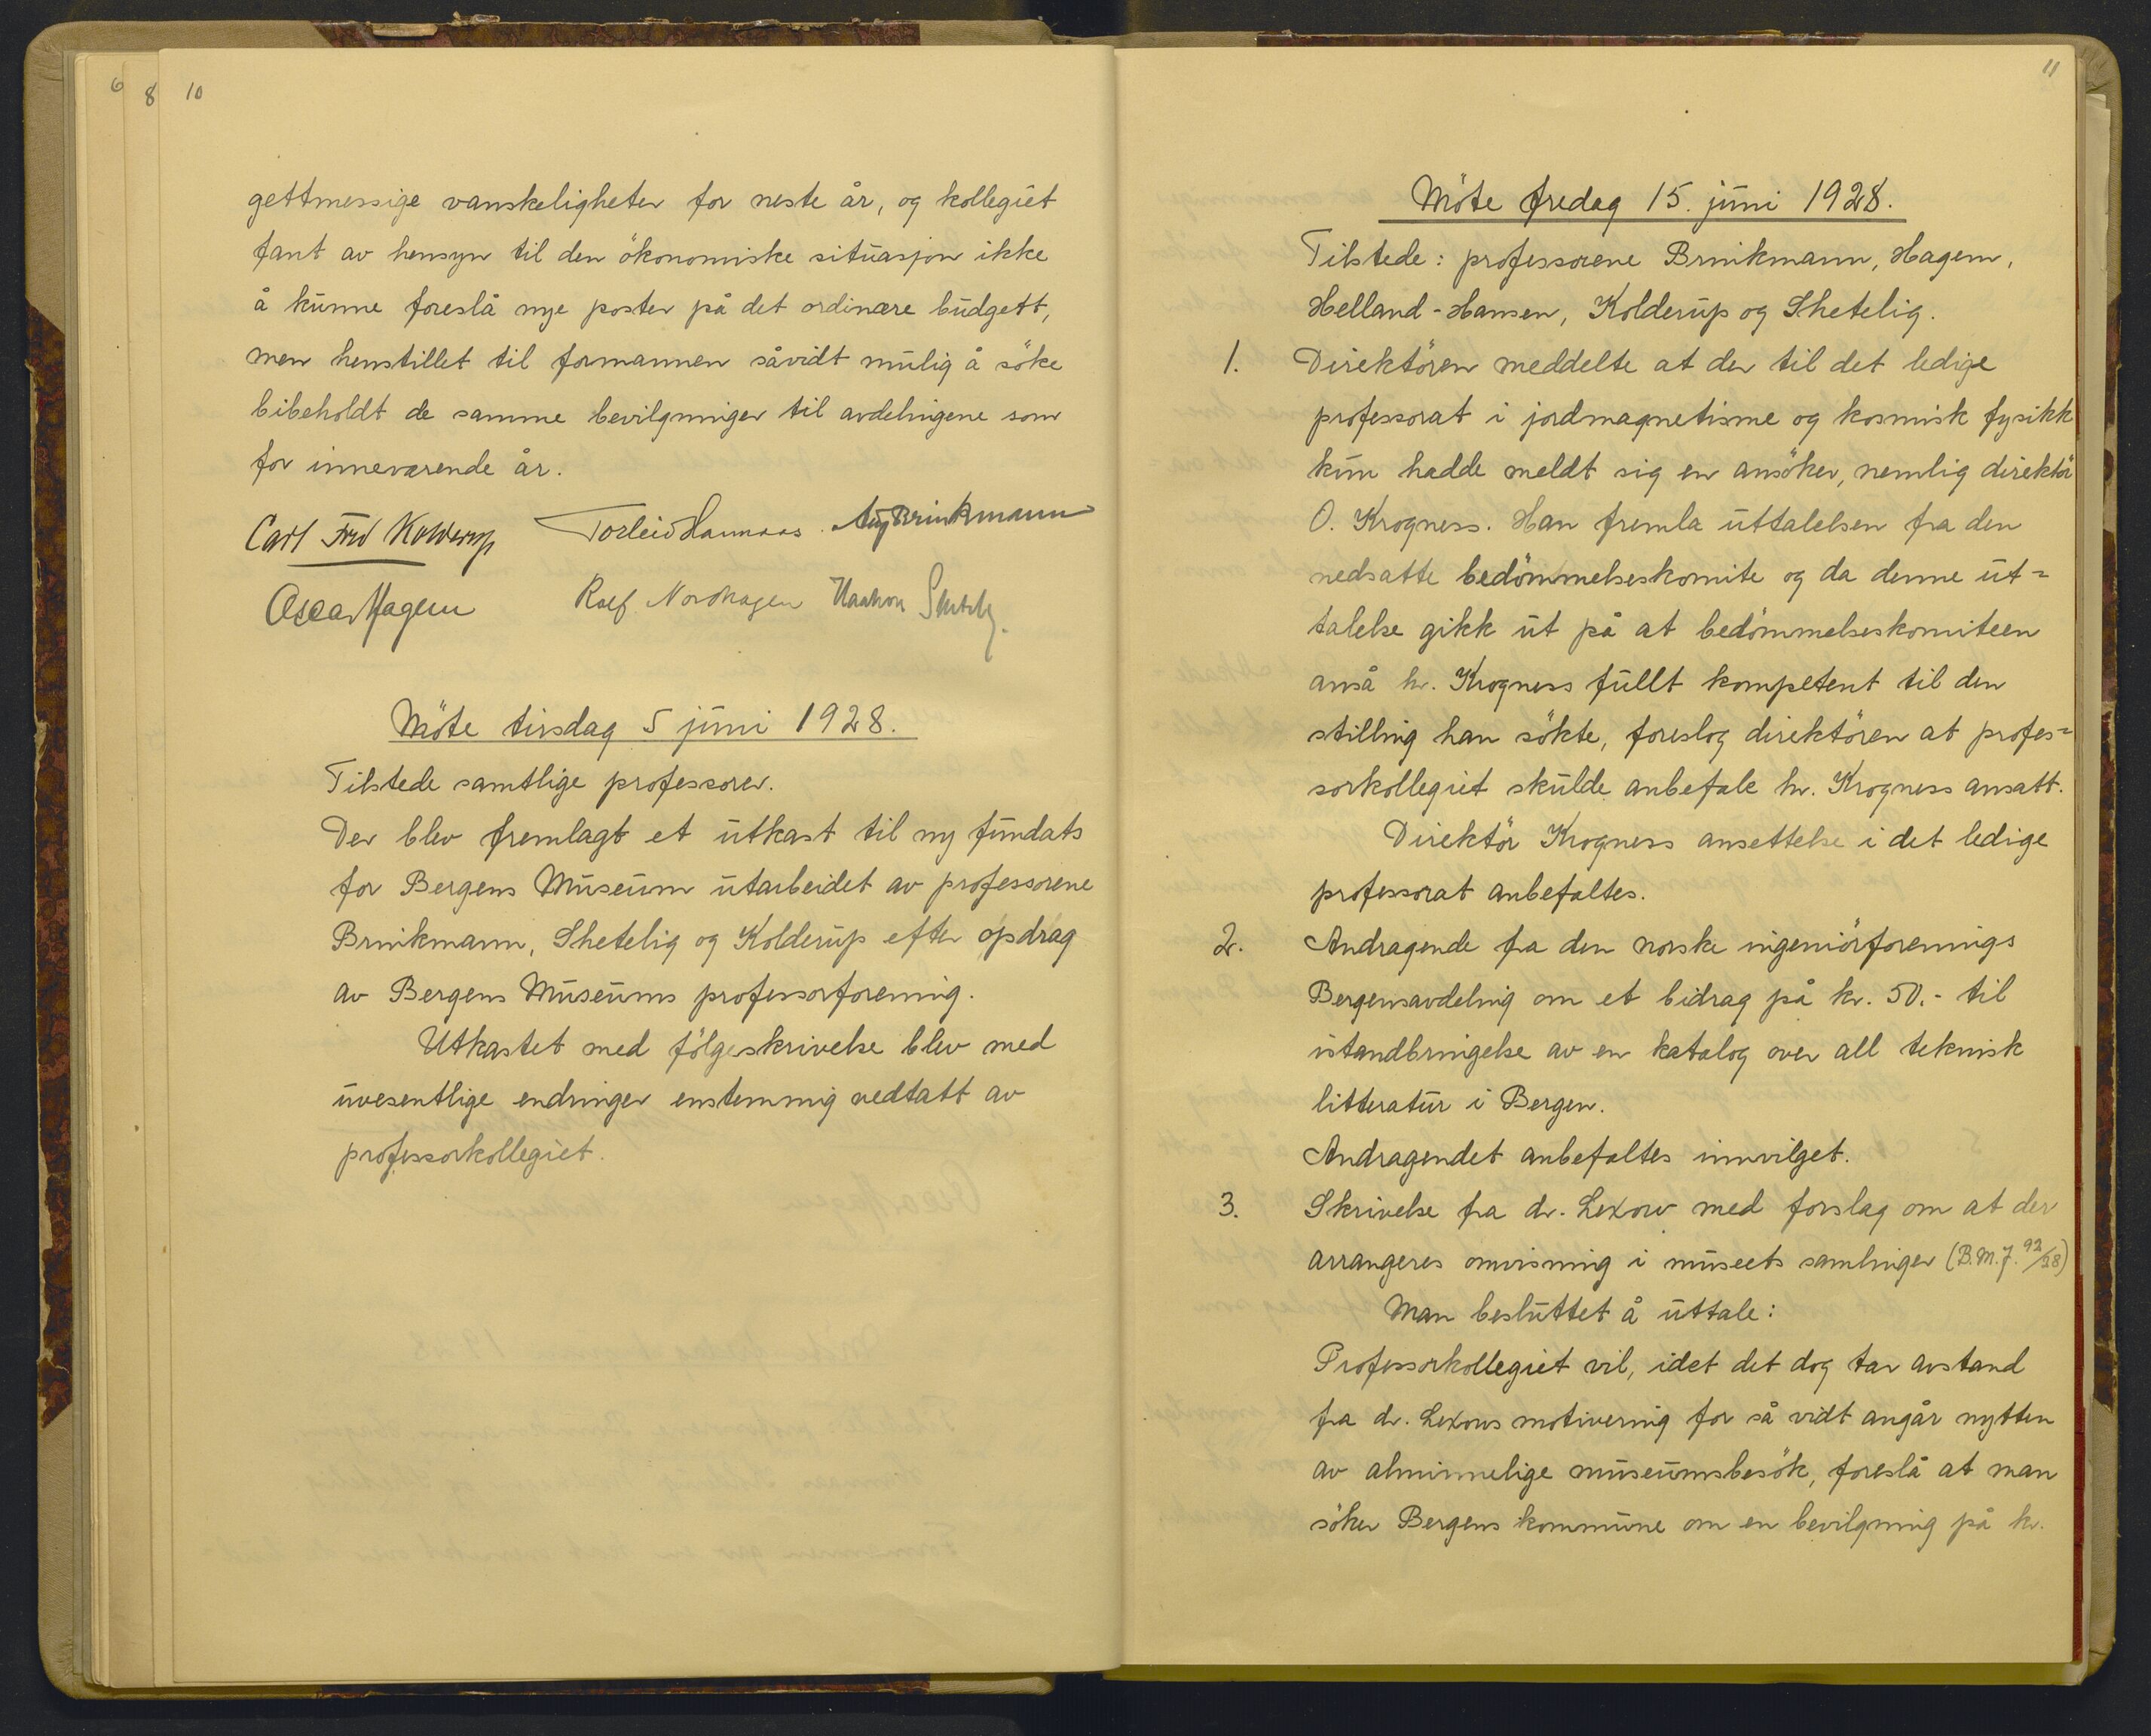 6 8 10
gettmessige vanskeligheter for neste år, og kollegiet
fant av hensyn til den ökonomiske situasjon ikke
å kunne foreslå nye poster på det ordinære budgett,
men henstillet til formannen såvidt mulig å söke
bibeholdt de samme bevilgninger til avdelingene som
for inneværende år.
Carl Fred Kolderup Torleiv Hannaas. Aug Brinkmann
Oscar Hagem Rolf Nordhagen Haakon Shetelig.
Möte tirsdag 5 juni 1928.
Tilstede samtlige professorer.
Der blev fremlagt et utkast til ny fundats
for Bergens Museum utarbeidet av professorene
Brinkmann, Shetelig og Kolderup efter opdrag
av Bergens Museums professorforening.
Utkastet med fölgeskrivelse blev med
uvesentlige endringer enstemmig vedtatt av
professorkollegiet.
11
Möte fredag 15. juni 1928.
Tilstede: professorene Brinkmann, Hagem,
Helland-Hansen, Kolderup og Shetelig.
1. Direktören meddelte at der til det ledige
professorat i jordmagnetisme og kosmisk fysikk
kun hadde meldt sig en ansöker, nemlig direktör
O. Krogness. Han fremla uttalelsen fra den
nedsatte bedömmelseskomite og da denne ut=
talelse gikk ut på at bedömmelseskomiteen
anså hr. Krogness fullt kompetent til den
stilling han sökte, foreslog direktören at profes=
sorkollegiet skulde anbefale hr. Krogness ansatt.
Direktör Krogness ansettelse i det ledige
professorat anbefaltes.
2. Andragende fra den norske ingeniörforenings
Bergensavdeling om et bidrag på kr. 50.- til
istandbringelse av en katalog over all teknisk
litteratur i Bergen.
Andragendet anbefaltes innvilget.
3. Skrivelse fra dr. Lexow med forslag om at der
arrangeres omvisning i museets samlinger (B.M.J. 92/28)
Man besluttet å uttale:
Professorkollegiet vil, idet det dog tar avstand
fra dr. Lexows motivering for så vidt angår nytten
av alminnelige museumsbesök, foreslå at man
söker Bergens kommune om en bevilgning på kr.